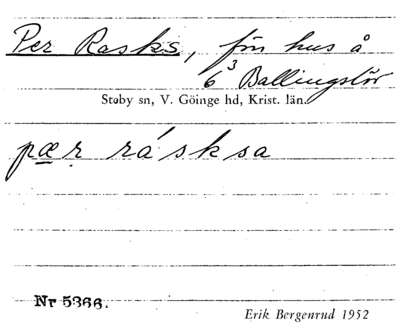 Per Rasks, för hus å
6³ Ballingslöv
Stoby sn, V. Göinge hd, Krist. län.
pæ̱r rásksa
Nr 5366.
Erik Bergenrud 1952